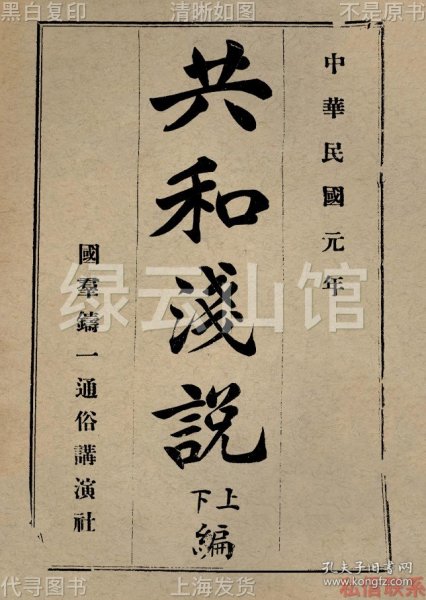 黑白复印 清晰如图 不是原书
中華民國元年
共和淺説
上下編
國羣鑄一通俗講演社
绿云山馆
孔夫子旧书网
www.kongfz.com
代寻图书 上海发货 私信联系